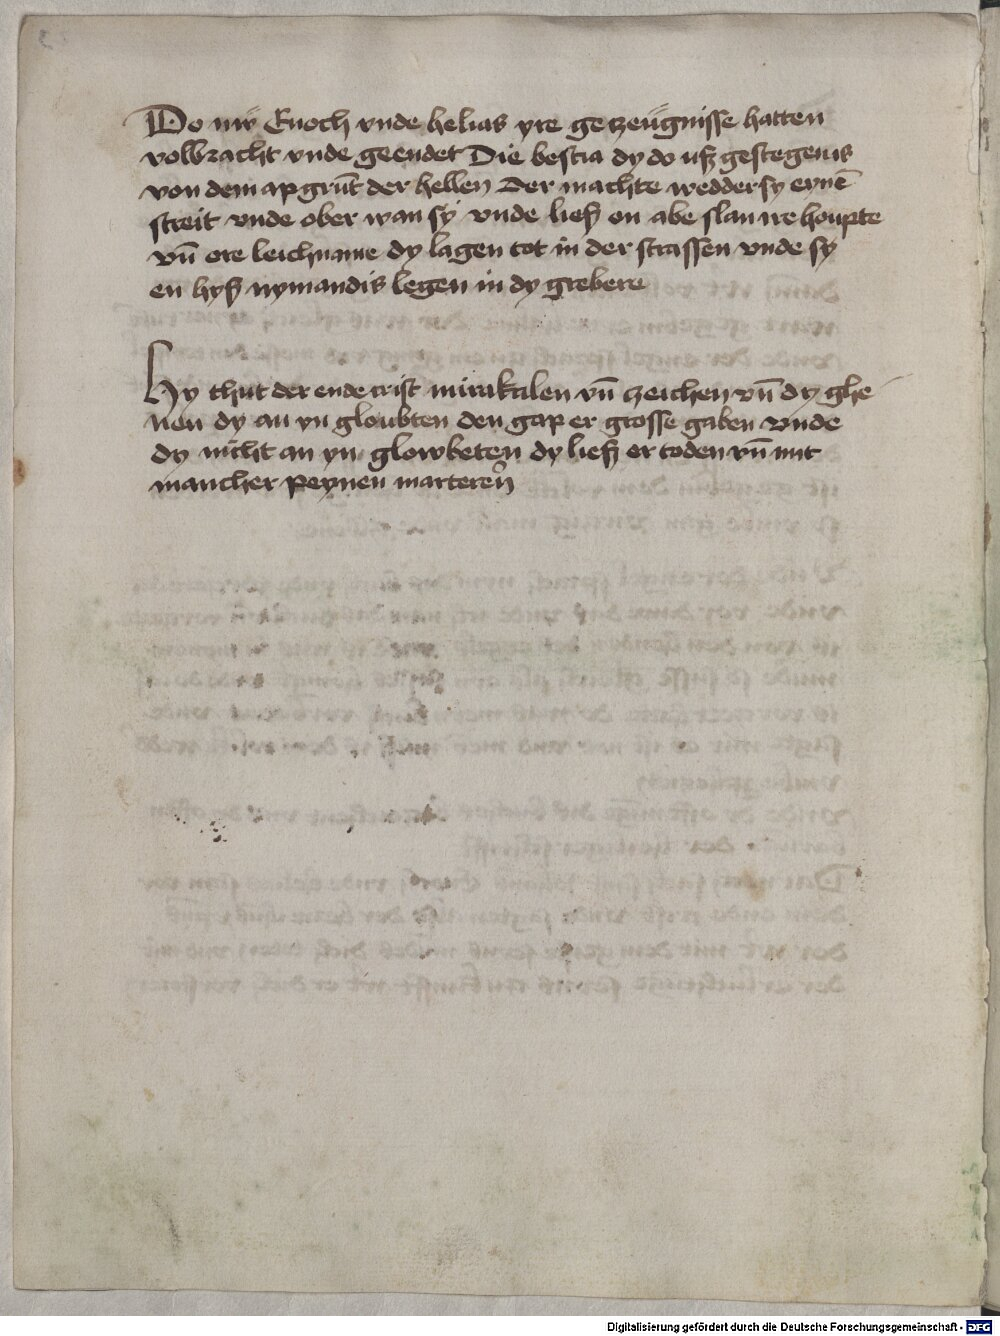 Do nw Enoch vnde helias yre getzeügnisse hatten
volbracht vnde geendet Die bestia dy do uff gestegen is
von dem apgrūt der hellen Der machte weddersy eynē
streit vnde ober wan sy vnde liesz en abe slan ire houpte
vn̄ ere leichname dy lagen tot in der strassen vnde sy
en hysz nymandis legen in dy grebere
Hy thut der ende crist mirakalen vn̄ zeichen vn̄ dy ghe
nen dy an yn gloubten den gap er grosse gaben vnde
dy nicht an yn glowbeten dy liesz er toden vn̄ mit
mancher peynen marteren
Digitalisierung gefördert durch die Deutsche Forschungsgemeinschaft - DFG